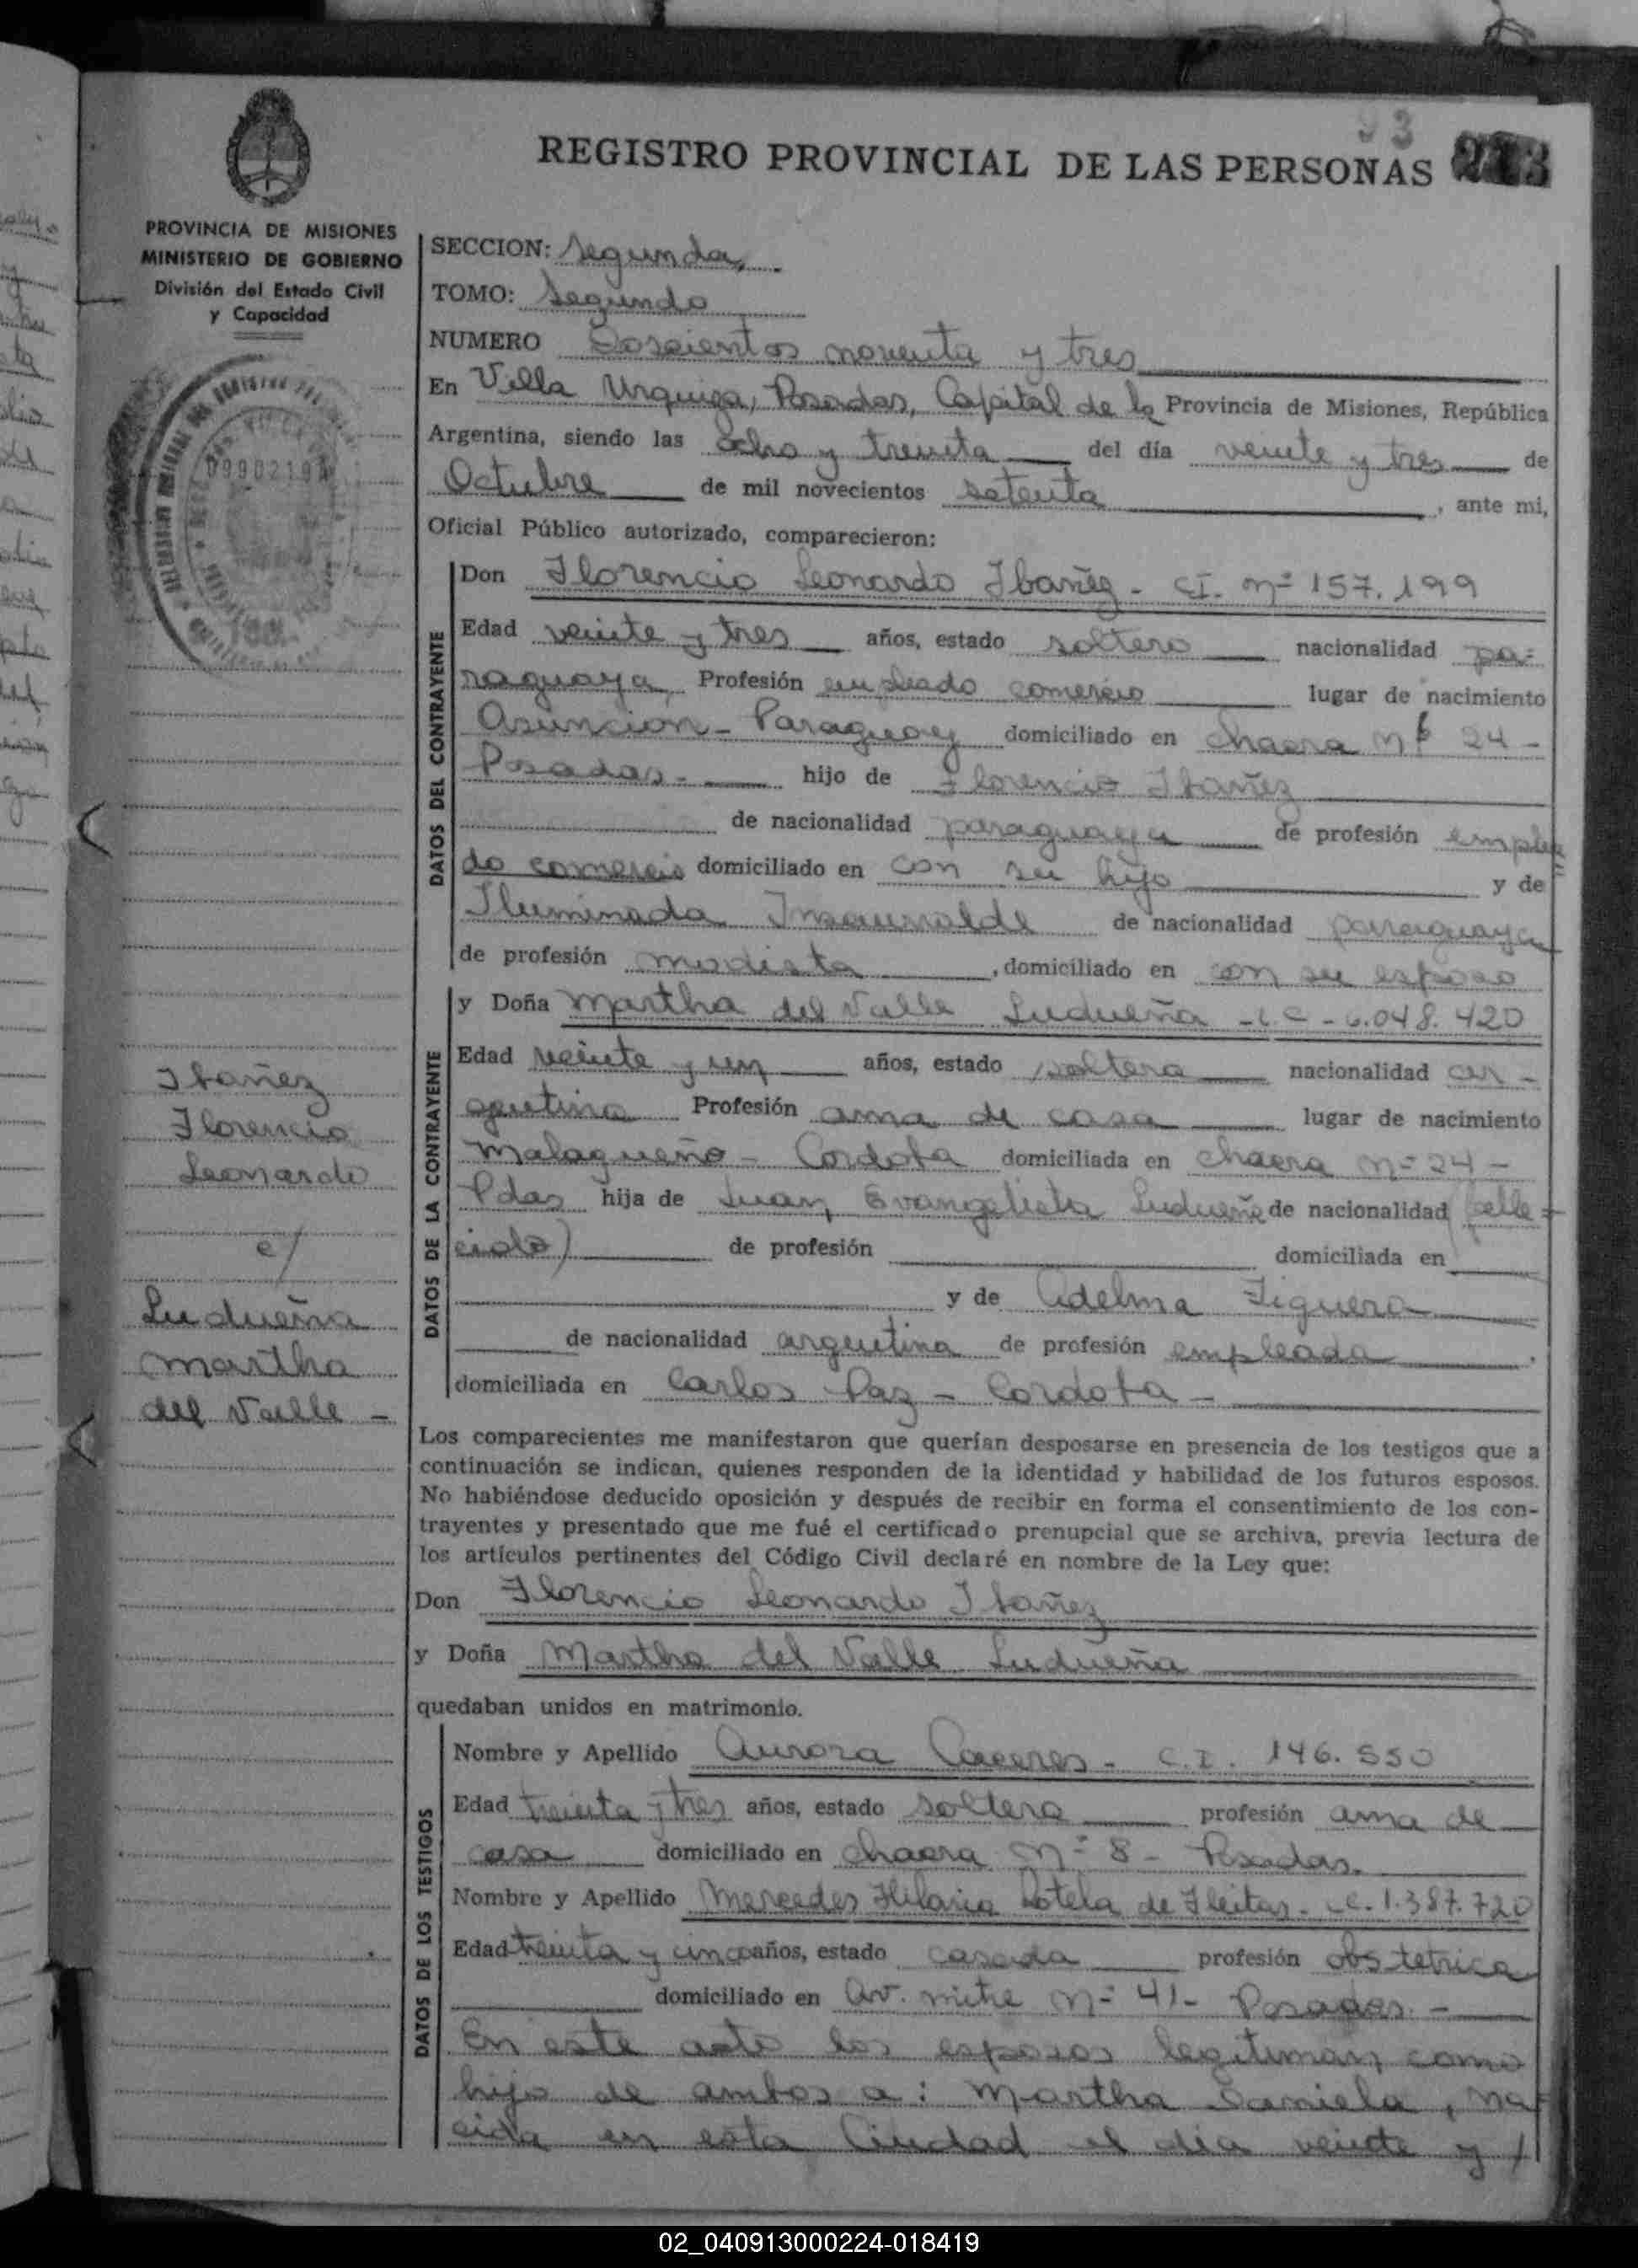 93
REGISTRO PROVINCIAL DE LAS PERSONAS
PROVINCIA DE MISIONES
MINISTERIO DE GOBIERNO
División del Estado Civil
y Capacidad
SECCION: Segunda
TOMO: Segundo
NUMERO Doscientos noventa y tres
En Villa Urquiza, Posadas, Capital de la Provincia de Misiones, República
Argentina, siendo las ocho y treinta del día veinte y tres de
Octubre de mil novecientos setenta, ante mi,
Oficial Público autorizado, comparecieron:
DATOS DEL CONTRAYENTE
Don Florencio Leonardo Ibañez - C.I. nº 157.199
Edad veinte y tres años, estado soltero nacionalidad pa=
raguaya Profesión empleado comercio lugar de nacimiento
Asunción - Paraguay domiciliado en chacra nº 24 -
Posadas - hijo de Florencio Ibañez
de nacionalidad paraguaya de profesión emplea=
do comercio domiciliado en con su hijo y de
Iluminada Insaurralde de nacionalidad paraguaya
de profesión modista, domiciliado en con su esposo
DATOS DE LA CONTRAYENTE
y Doña Martha del Valle Ludueña - L.C - 6.048.420
Edad veinte y un años, estado soltera nacionalidad ar -
gentina Profesión ama de casa lugar de nacimiento
Malagueño - Cordoba domiciliada en chacra nº 24 -
Pdas hija de Juan Evangelista Ludueña de nacionalidad (falle=
cido) de profesión domiciliada en
y de Adelma Figueroa
de nacionalidad argentina de profesión empleada.
domiciliada en Carlos Paz - Cordoba -
Ibañez
Florencio
Leonardo
c/
Ludueña
Martha
del Valle -
Los comparecientes me manifestaron que querían desposarse en presencia de los testigos que a
continuación se indican, quienes responden de la identidad y habilidad de los futuros esposos.
No habiéndose deducido oposición y después de recibir en forma el consentimiento de los con-
trayentes y presentado que me fué el certificado prenupcial que se archiva, previa lectura de
los artículos pertinentes del Código Civil declaré en nombre de la Ley que:
Don Florencio Leonardo Ibañez
y Doña Martha del Valle Ludueña
quedaban unidos en matrimonio.
DATOS DE LOS TESTIGOS
Nombre y Apellido Aurora Caceres - C.I. 146.550
Edad treinta y tres años, estado soltera profesión ama de
casa domiciliado en chacra nº 8 - Posadas.
Nombre y Apellido Mercedes Hilaria Sotela de Fleitas - L.C. 1.387.720
Edad treinta y cinco años, estado casada profesión obstetrica
domiciliado en Av. mitre nº 41 - Posadas. -
En este acto los esposos legitiman como
hijo de ambos a: Martha Daniela, na
cida en esta Ciudad el dia veinte y /
02_040913000224-018419